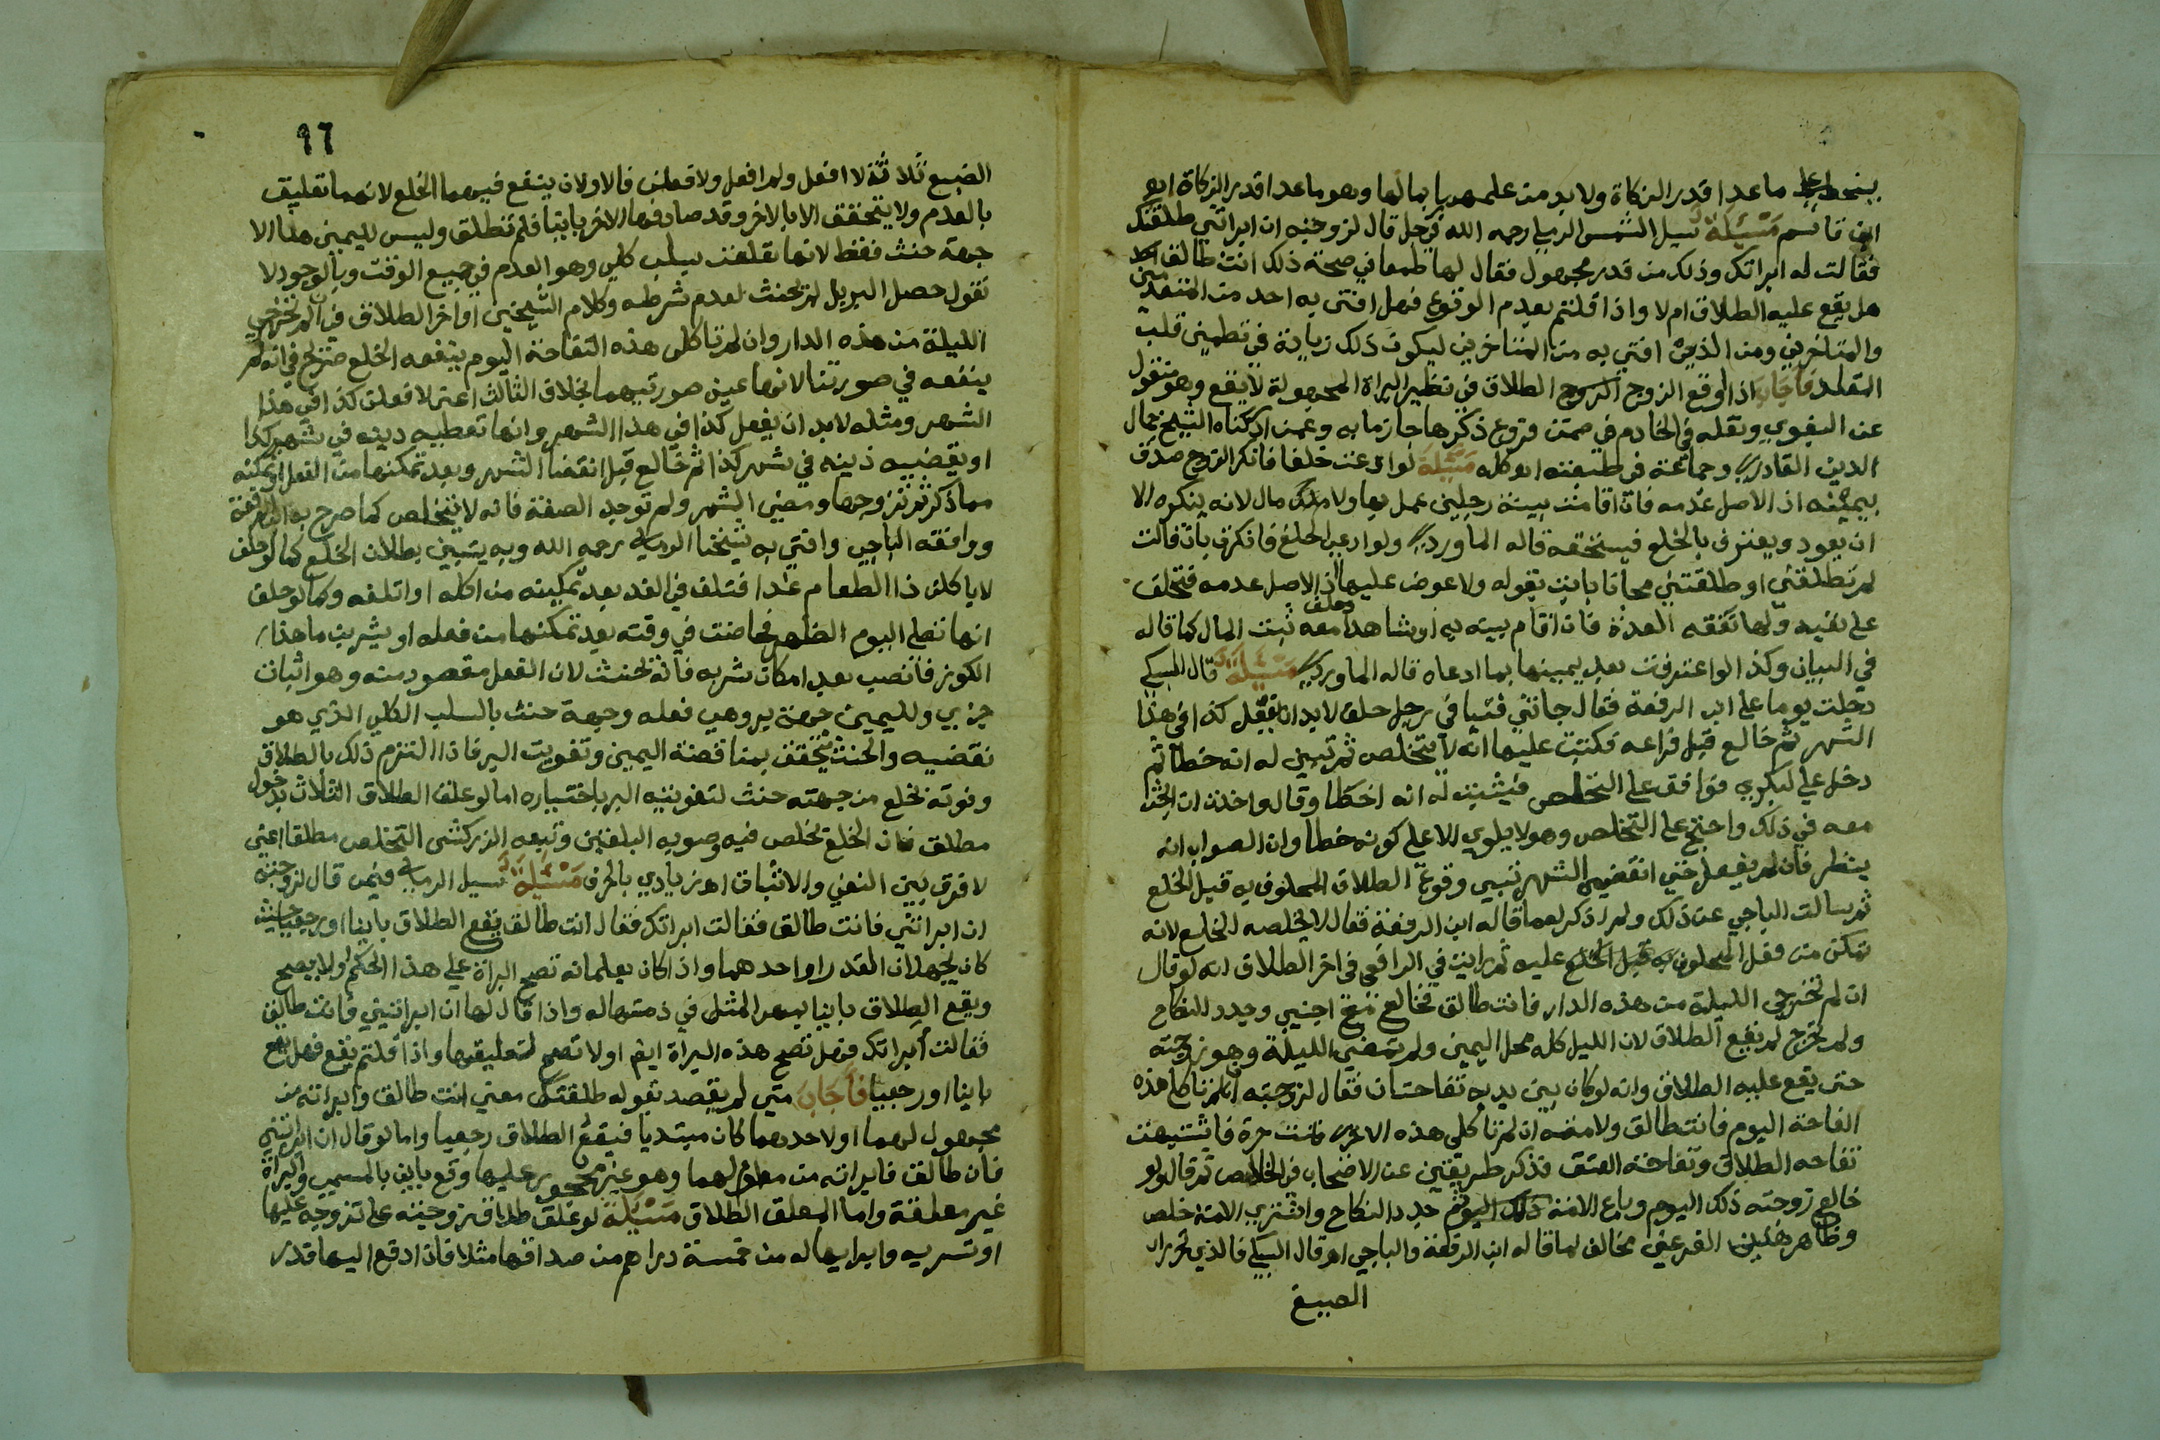 ينحط على ما عدا قدر الزكاة ولا بد من علمهما بما لها وهو ما عدا قدر الزكاة اهـ
ابن قاسم مسئلة سيل الشمس الرملي رحمه الله في رجل قال لزوجته ان ابراتني طلقتك
فقالت له ابراتك وذلك من قدر مجهول فقال لها طمعا في صحة ذلك انت طالق
هل يقع عليه الطلاق ام لا واذا قلتم بعدم الوقوع فهل افتى به احد من المتقدمين
والمتاخرين ومن الذي افتى به من المتاخرين ليكون ذلك زيادة في تطمين قلب
المقلد فاجاب اذا اوقع الزوج الطلاق في نظير البراة المجهولة لا يقع وهو منقول
عن البغوي ونقله في الخادم في ضمن فروع ذكرها جازما به وعمن ادركناه الشيخ جمال
الدين القادري وجماعة في طبقته اهـ كله مسئلة لو ادعت خلعا فانكر الزوج صدق
بيمينه اذ الاصل عدمه فان اقامت بينة رجلين عمل بها ولا مال لانه ينكره الا
ان يعود ويعترف بالخلع فيستحقه قاله الماوردي ولو ادعى الخلع فانكرت بان قالت
لم تطلقني او طلقتني مجانا بانت بقوله ولا عوض عليها اذ الاصل عدمه فتحلف
على نفيه ولها نفقة العدة فان اقام بينة به او شاهدا وحلف معه ثبت المال كما قاله
في البيان وكذا لو اعترفت بعد يمينها بما ادعاه قاله الماوردي مسئلة قال السبكي
دخلت يوما على ابن الرفعة فقال جاتني فتيا في رجل حلف لا بد ان يفعل كذا في هذا
الشهر ثم خالع قبل فراغه فكتبت عليها انه لا يتخلص ثم تبين لي انه خطا ثم
دخل علي البكري فوافق على التخلص فبينت له انه اخطا وقال واخذت ابحث
معه في ذلك واحتج على التخلص وهو لا يلوي الا على كونه خطا وان الصواب انه
ينظر فان لم يفعل حتى انقضى الشهر تبين وقوع الطلاق المحلوف به قبل الخلع
ثم سالت الباجي عن ذلك ولم اذكر له ما قاله ابن الرفعة فقال لا يخلصه الخلع لانه
تمكن من فعل المحلوف به قبل الخلع عليه ثم رايت في الرافعي في اخر الطلاق انه لو قال
ان لم تخرجي الليلة من هذه الدار فانت طالق فخالع مع اجنبي وجدد النكاح
ولم تخرج لم يقع الطلاق لان الليل كله محل اليمين ولم تمض الليلة وهو زوجته
حتى يقع عليه الطلاق وانه لو كان بين يديه تفاحتان فقال لزوجته ان لم تاكلي هذه
التفاحة اليوم فانت طالق ولامته ان لم تاكلي هذه الاخرى فانت حرة فاشتبهت
تفاحة الطلاق وتفاحة العتق فذكر طريقين عن الاصحاب في الخلاص ثم قال ولو
خالع زوجته ذلك اليوم وباع الامة ذلك اليوم ثم جدد النكاح واشترى الامة خلص
وظاهر هذين الفرعين مخالف لما قاله ابن الرفعة والباجي اهـ قال السبكي فالذي تحرر ان
الصيغ
٩٦
الصيغ ثلاثة لا افعل ولم افعل ولافعلن فالاولان ينفع فيهما الخلع لانهما تعليق
بالعدم ولا يتحقق الا بالاخر وقد صادفها الاخر باينا فلم تطلق وليس لليمين هنا الا
جهة حنث فقط لانها تعلقت بسلب كلي وهو العدم في جميع الوقت وبالوجود لا
نقول حصل البر بل لم يحنث لعدم شرطه وكلام الشيخين اواخر الطلاق في ان لم تخرجي
الليلة من هذه الدار وان لم تاكلي هذه التفاحة اليوم ينفعه الخلع صريح في انه
ينفعه في صورتنا لانها عين صورتيهما بخلاف الثالث اعني لافعلن كذا في هذا
الشهر ومثله لا بد ان يفعل كذا في هذا الشهر وانها تعطيه دينه في شهر كذا
او يقضيه دينه في شهر كذا ثم خالع قبل انقضا الشهر وبعد تمكنها من الفعل او تمكنه
مما ذكر ثم تزوجها ومضى الشهر ولم توجد الصفة فانه لا يتخلص كما صرح به ابن الرفعة
ووافقه الباجي وافتى به شيخنا الرملي رحمه الله وبه يتبين بطلان الخلع كما لو حلف
لا ياكلن ذا الطعام غدا فتلف في الغد بعد تمكينه من اكله او اتلفه وكما لو حلف
انها تصلي اليوم الظهر فحاضت في وقته بعد تمكنها من فعله او يشربن ما هذا
الكوز فانصب بعد امكان شربه فانه يحنث لان الفعل مقصود منه وهو اثبات
جزئي ولليمين جهة بر وهي فعله وجهة حنث بالسلب الكلي الذي هو
نقضيه والحنث يتحقق بمناقضة اليمين وتفويت البر فاذا التزم ذلك بالطلاق
وفوته بخلع من جهته حنث لتفويته البر باختياره اما لو علق الطلاق الثلاث بدخول
مطلق فان الخلع يخلص فيه وصوبه البلقيني وتبعه الزركشي التخلص مطلقا اعني
لا فرق بين النفي والاثبات اهـ زيادي بالحرف مسئلة سيل الرملي فيمن قال لزوجته
ان ابراتني فانت طالق فقالت ابراتك فقال انت طالق يقع الطلاق باينا او رجعيا حيث
كان يجهلان القدر او احدهما واذا كان يعلمانه تصح البراة على هذا الحكم او لا يصح
ويقع الطلاق باينا بمهر المثل في ذمتها له واذا قال لها ان ابراتيني فانت طالق
فقالت ابراتك فهل تصح هذه البراة ايضا او لا تصح لتعليقها واذا قلتم يقع فهل يقع
باينا او رجعيا فاجاب متى لم يقصد بقوله طلقتك معنى انت طالق وابراته من
مجهول لهما او لاحدهما كان مبتديا فيقع الطلاق رجعيا واما لو قال ان ابراتيني
فان طالق فابراته من معلوم لهما وهو غير محجور عليها وقع باين بالمسمى والبراة
غير معلقة واما المعلق الطلاق مسئلة لو علق طلاق زوجته على تزوجه عليها
او تسريه وابرايها له من خمسة دراهم من صداقها مثلا فاذا دفع اليها قدر